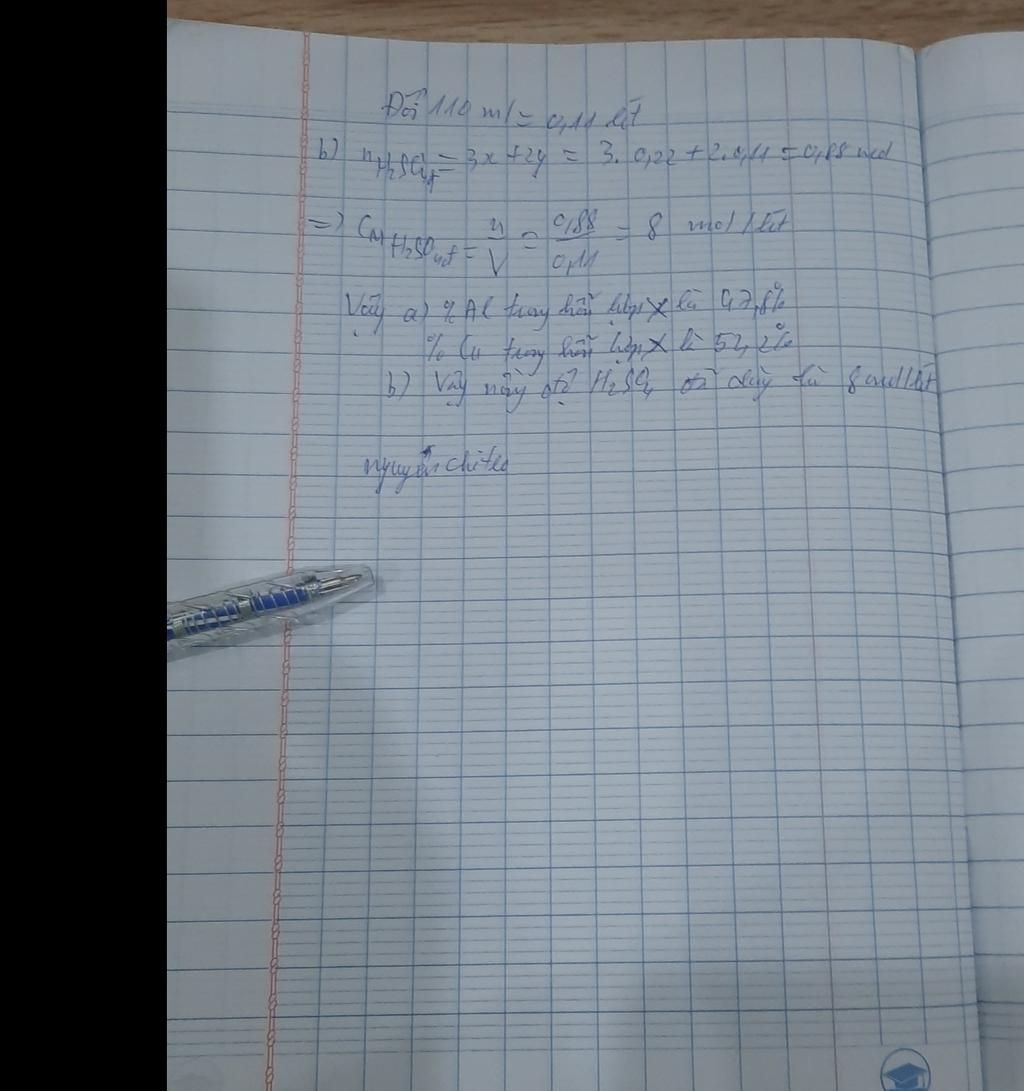 Đổi 110 ml = 0,11 lít
b) nH₂SO₄đ = 3x + 2y = 3. 0,22 + 2. 0,11 = 0,88 mol
=) CM H₂SO₄đ = n/V = 0,88/0,11 = 8 mol / lít
Vậy a) % Al trong hỗn hợp X là 47,8%
% Cu trong hỗn hợp X là 52,2%
b) Vậy nồng độ H₂SO₄ đã dùng là 8 mol/lít
nguyễn